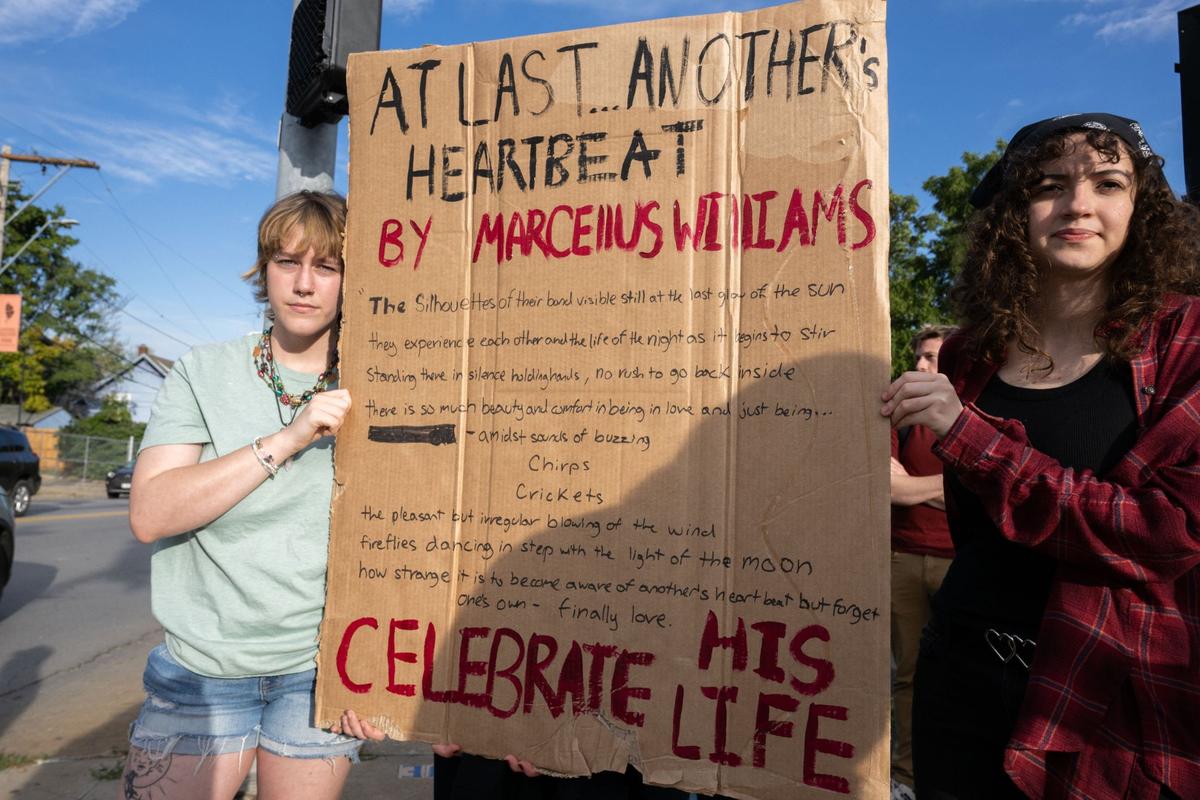 AT LAST... ANOTHER's
HEARTBEAT
BY MARCEllUS WIllIAMS
"The Silhouettes of their bond visible still at the last glow of the sun
they experience each other and the life of the night as it begins to stir
Standing there in silence holding hands, no rush to go back inside
there is so much beauty and comfort in being in love and just being...
- amidst sounds of buzzing
Chirps
Crickets
the pleasant but irregular blowing of the wind
fireflies dancing in step with the light of the moon
how strange it is to become aware of another's heart beat but forget
one's own - finally love.
CELEBRATE HIS
LIFE